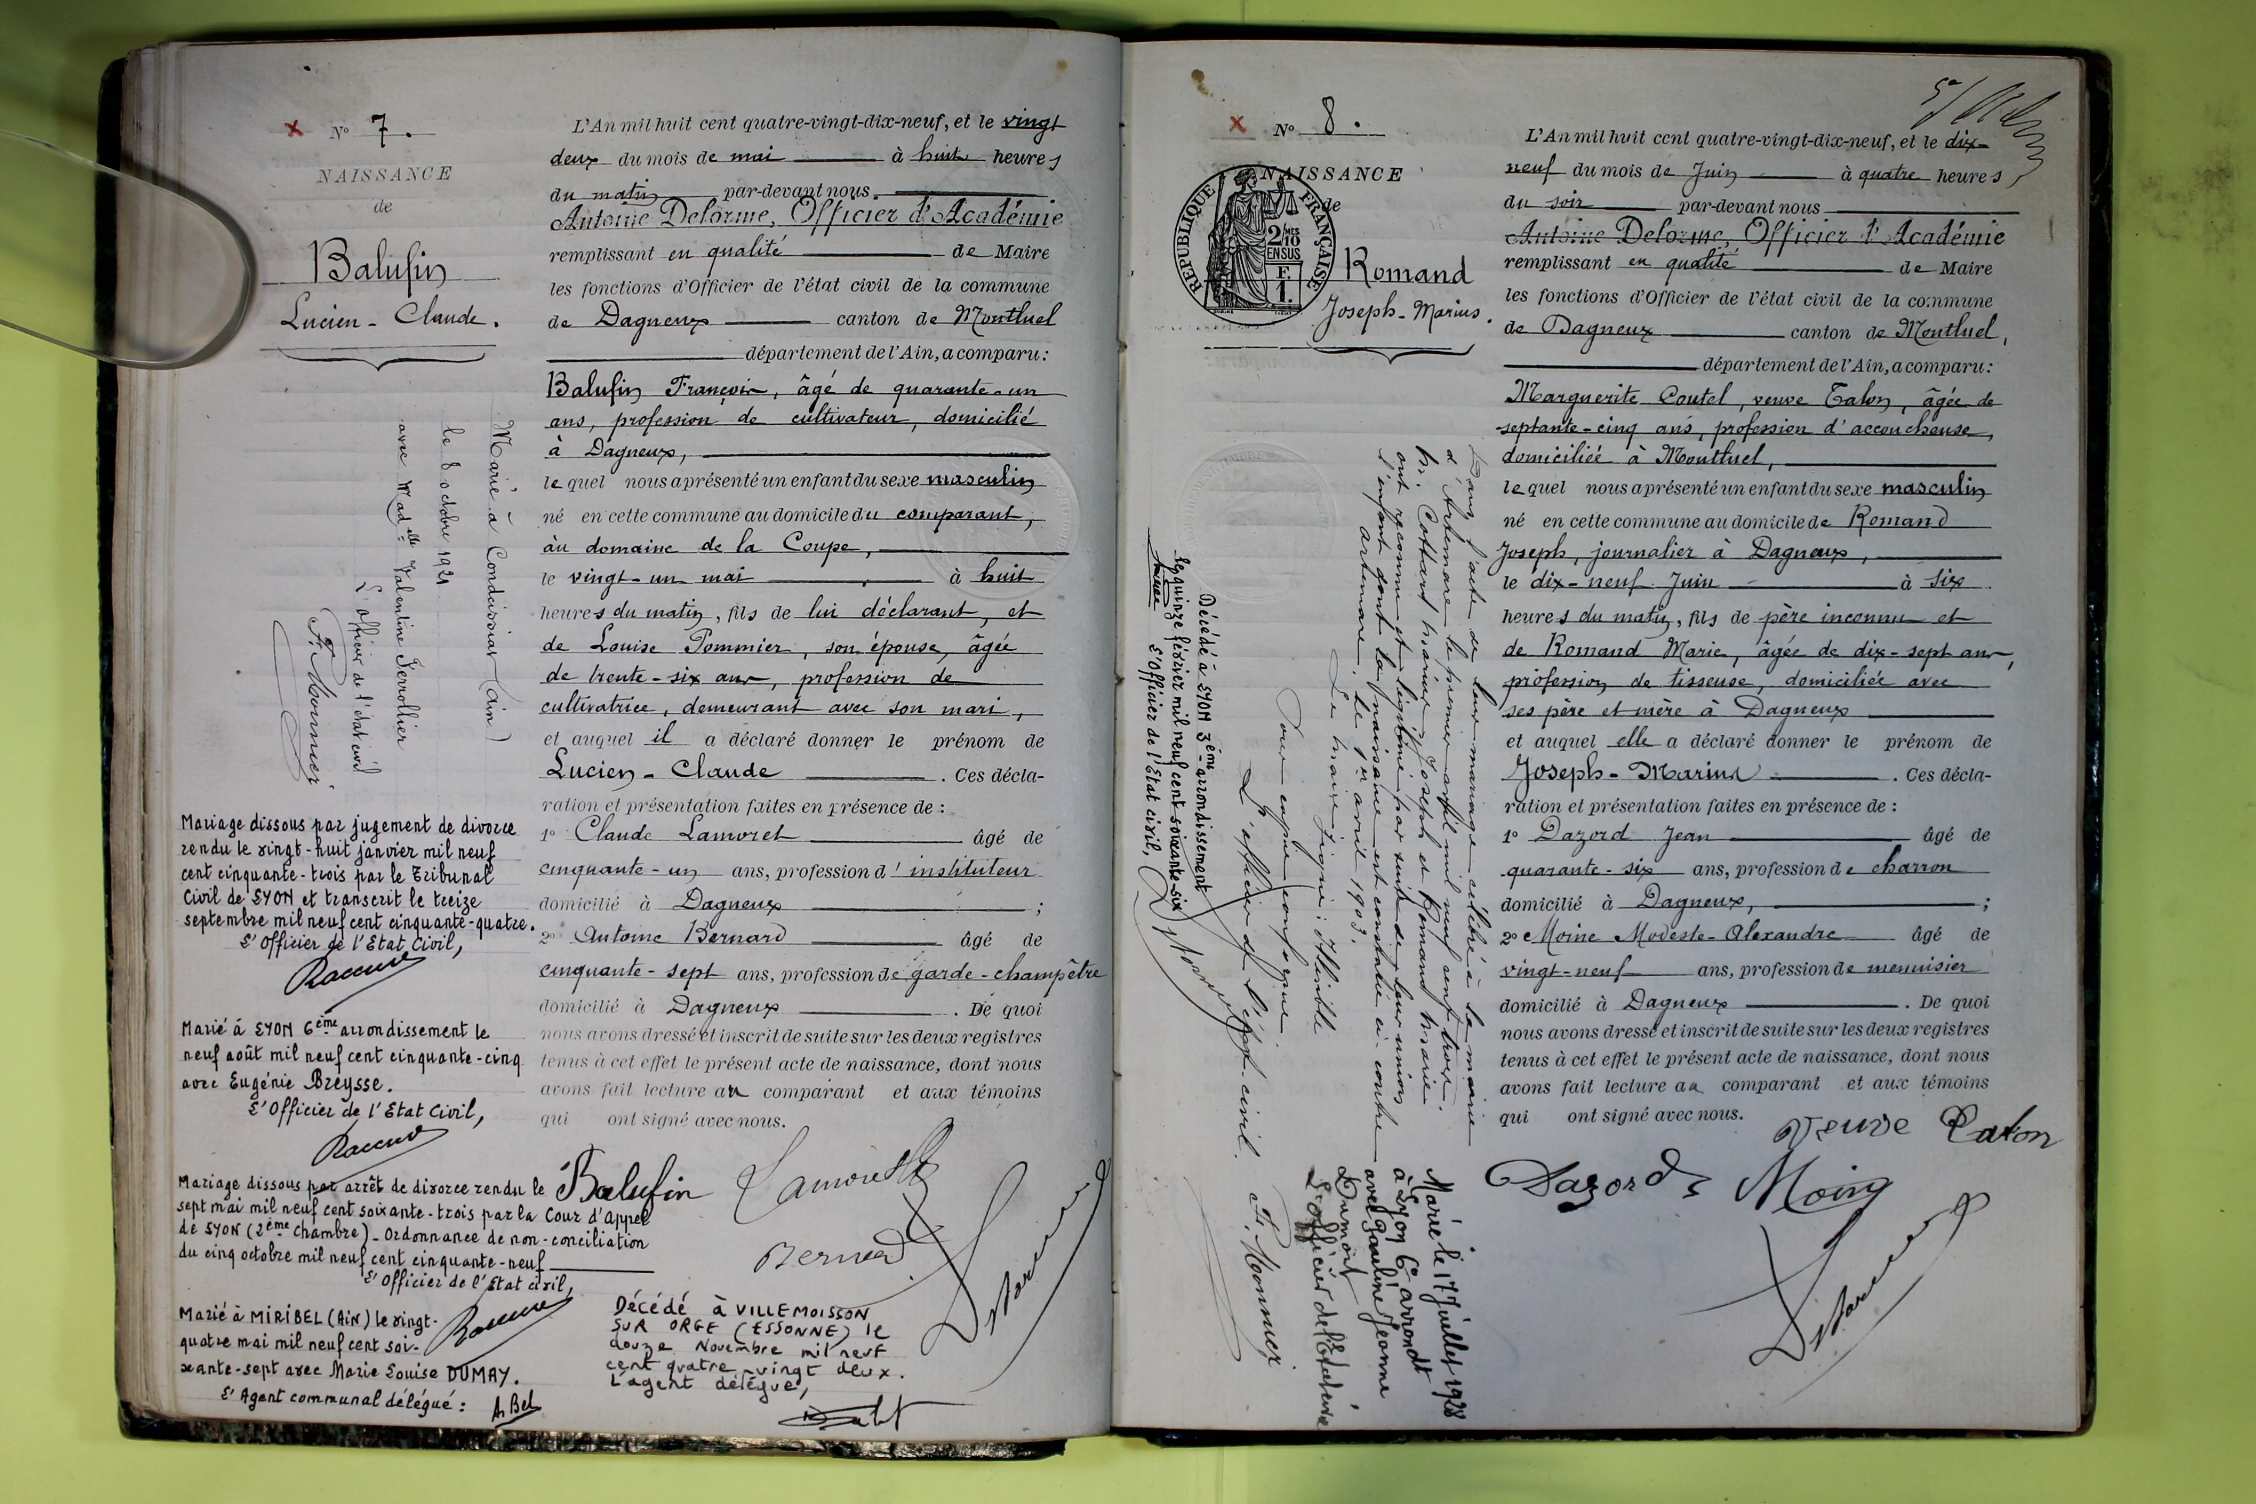 Nº 7.
NAISSANCE
de
Balufin
Lucien - Claude.
L'An mil huit cent quatre-vingt-dix-neuf, et le vingt
deux du mois de mai à huit heures
du matin par-devant nous
Antoine Delorme, Officier d'Académie
remplissant en qualité de Maire
les fonctions d'Officier de l'état civil de la commune
de Dagneux canton de Montluel
département de l'Ain, a comparu:
Balufin François, âgé de quarante-un
ans, profession de cultivateur, domicilié
à Dagneux,
lequel nous a présenté un enfant du sexe masculin
né en cette commune au domicile du comparant,
au domaine de la Coupe,
le vingt-un mai à huit
heures du matin, fils de lui déclarant, et
de Louise Pommier, son épouse, âgée
de trente-six ans, profession de
cultivatrice, demeurant avec son mari,
et auquel il a déclaré donner le prénom de
Lucien - Claude. Ces décla-
ration et présentation faites en présence de :
1º Claude Lamoret âgé de
cinquante-un ans, profession d'instituteur
domicilié à Dagneux ;
2º Antoine Bernard âgé de
cinquante-sept ans, profession de garde-champêtre
domicilié à Dagneux. De quoi
nous avons dressé et inscrit de suite sur les deux registres
tenus à cet effet le présent acte de naissance, dont nous
avons fait lecture au comparant et aux témoins
qui ont signé avec nous.
Balufin Lamoret
Bernard
Delorme
Marié à Condeissiat (Ain)
le 8 octobre 1921
avec Mad.elle Valentine
L'officier de l'état civil
F. Monnier
Mariage dissous par jugement de divorce
rendu le vingt-huit janvier mil neuf
cent cinquante-trois par le Tribunal
Civil de LYON et transcrit le treize
septembre mil neuf cent cinquante-quatre.
L'Officier de l'Etat Civil,
Marié à LYON 6ème arrondissement le
neuf août mil neuf cent cinquante-cinq
avec Eugénie Breysse.
L'Officier de l'Etat Civil,
Mariage dissous par arrêt de divorce rendu le
sept mai mil neuf cent soixante-trois par la Cour d'Appel
de LYON (2ème Chambre) - Ordonnance de non-conciliation
du cinq octobre mil neuf cent cinquante-neuf
L'Officier de l'Etat civil,
Marié à MIRIBEL (Ain) le vingt-
quatre mai mil neuf cent soi-
xante-sept avec Marie Louise DUMAY.
L'Agent communal délégué :
A. Bel
Décédé à VILLEMOISSON
SUR ORGE (ESSONNE) le
douze Novembre mil neuf
cent quatre-vingt deux.
L'agent délégué,
Nº 8.
NAISSANCE
de
REPUBLIQUE FRANÇAISE
2/10 MES
EN SUS
F
1.
Romand
Joseph-Marius.
L'An mil huit cent quatre-vingt-dix-neuf, et le dix-
neuf du mois de Juin à quatre heures
du soir par-devant nous
Antoine Delorme, Officier d'Académie
remplissant en qualité de Maire
les fonctions d'Officier de l'état civil de la commune
de Dagneux canton de Montluel,
département de l'Ain, a comparu:
Marguerite Coutel, veuve Talon, âgée de
septante-cinq ans, profession d'accoucheuse,
domiciliée à Montluel,
lequel nous a présenté un enfant du sexe masculin
né en cette commune au domicile de Romand
Joseph, journalier à Dagneux,
le dix-neuf Juin à six
heures du matin, fils de père inconnu et
de Romand Marie, âgée de dix-sept ans,
profession de tisseuse, domiciliée avec
ses père et mère à Dagneux
et auquel elle a déclaré donner le prénom de
Joseph-Marius. Ces décla-
ration et présentation faites en présence de :
1º Dazord Jean âgé de
quarante-six ans, profession de charron
domicilié à Dagneux, ;
2º Moine Modeste-Alexandre âgé de
vingt-neuf ans, profession de menuisier
domicilié à Dagneux. De quoi
nous avons dressé et inscrit de suite sur les deux registres
tenus à cet effet le présent acte de naissance, dont nous
avons fait lecture au comparant et aux témoins
qui ont signé avec nous.
Veuve Talon
Dazord Moine
Delorme
Dans l'acte de leur mariage célébré à la mairie
d'Artemare le premier avril mil neuf cent trois.
M. Cottard Marius Joseph et Romand Marie
ont reconnu et légitimé par suite de leur union
l'enfant dont la naissance est constatée ci-contre
Artemare, le 1er avril 1903.
Le maire, signé:
Pour copie conforme:
L'officier de l'état civil
F. Monnier
Décédé à LYON 3ème arrondissement
le quinze février mil neuf cent soixante-six
L'Officier de l'Etat civil,
Marié le 17 Juillet 1928
à Lyon 6e arrondt
avec Pauline Jeanne
Dumont
L'officier de l'Etat civil